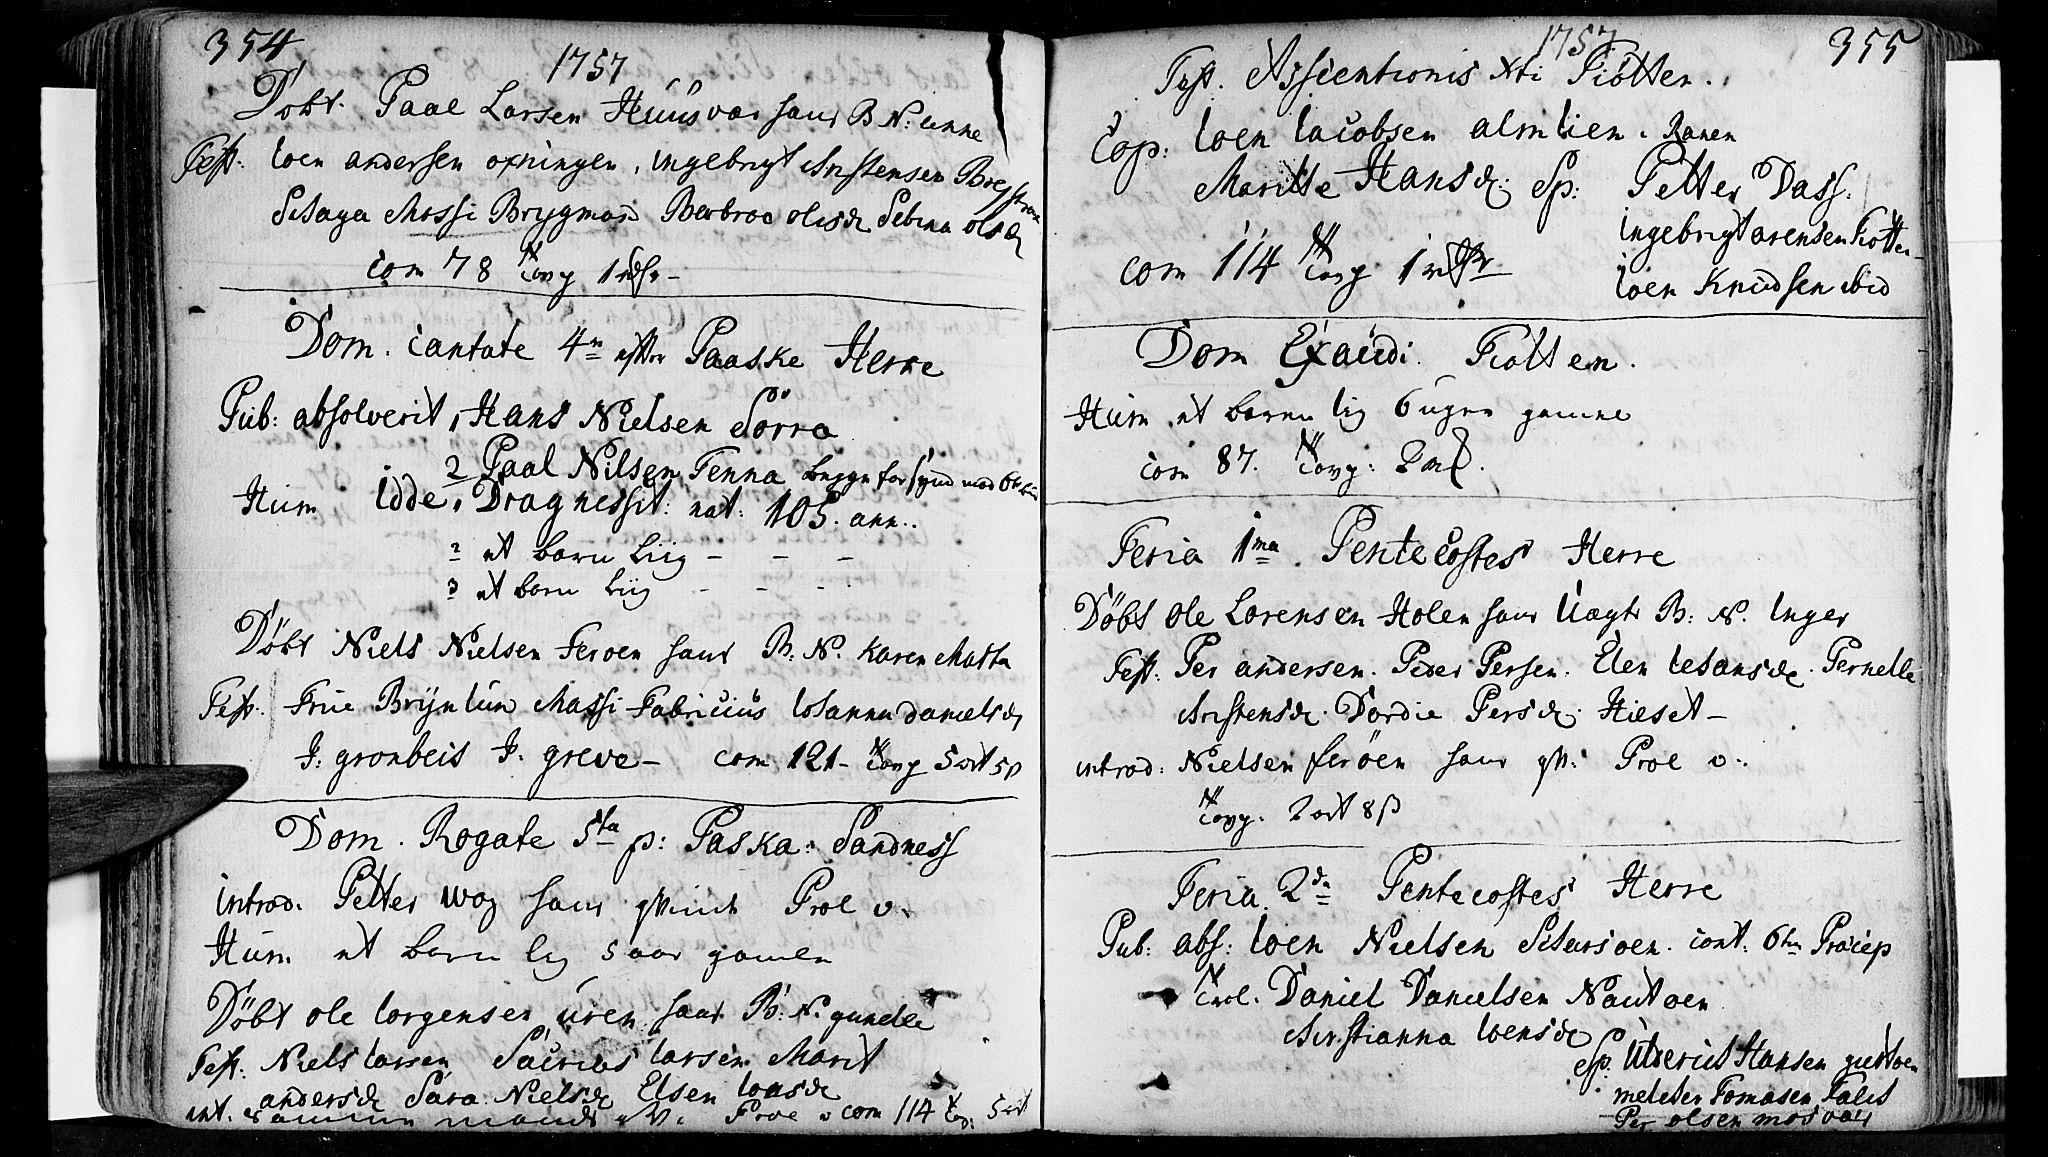 354
1757
Döbt. Paal Larsen Huusvar hans B N: anne
Test: loen andersen oxningen, ingebrigt christensen
Mossi Brygman Berbroe olisd Sebina olsd
com 78 Tavg 1
Dom. Cantate 4 efter Paaske Herre
Pub: absolverit, Hans Nielsen Sörra
2 Paal Nilsen Tenna begge for
Hum Idde, Dragnessit: nat: 105. ann..
2 et barn Liig - - -
3 et barn Liig - - -
Döbt Niels Nielsen Feroen hans B: N. Karen Marta
Test: Frue Brÿnlun Massi Fabricius Iohanna danielsd
J: gronbeis J. greve - com 121 - Tavg 5 ort 5 β
Dom. Rogate 5ta p: Paska: Sandness
introd. Petter wog hans qvinde Proe v.
Hum et barn lig 5 aar gamen
Döbt ole Iorgenser uren hans B: N. gunelle
Test: Niels larsen larsen Marit
andersd Sara Nielsd Elsen Ioasd
int. Proe v com 114 5 ort
1757 355
Fest. Asscentionis xti Tiötten.
Cop: Ioen Iacobsen almlien i Ranen
Maritte Hansd. Sp: Petter Dass.
ingebrigt arensen Tiotten
com 114 Tavg 1 Ioen Knudsen ibid
Dom Exaudi. Tiötten.
Hum et barne lig 6 ugers gamne
com 87. Tavg: 2
Feria 1ma Pentecostes Herre
Döbt ole Lorensen Holen hans B: N. Inger
Test: Per andersen. Peder Persen. Elen Iohansd. Pernelle
christensd. Dordie Persd. Hieset -
introd: Nielsen feröen hans qv: Proe v.
Tavg. 2 ort 8 β
Feria 2da Pentecostes Herre
Pub: abs: Ioen Nielsen cont: 6tm Præcep
Trol. Daniel Danielsen Nautoen
christianna Ioensd
Sp: Hansen
meleter Tomasen
Per olsen mosvar